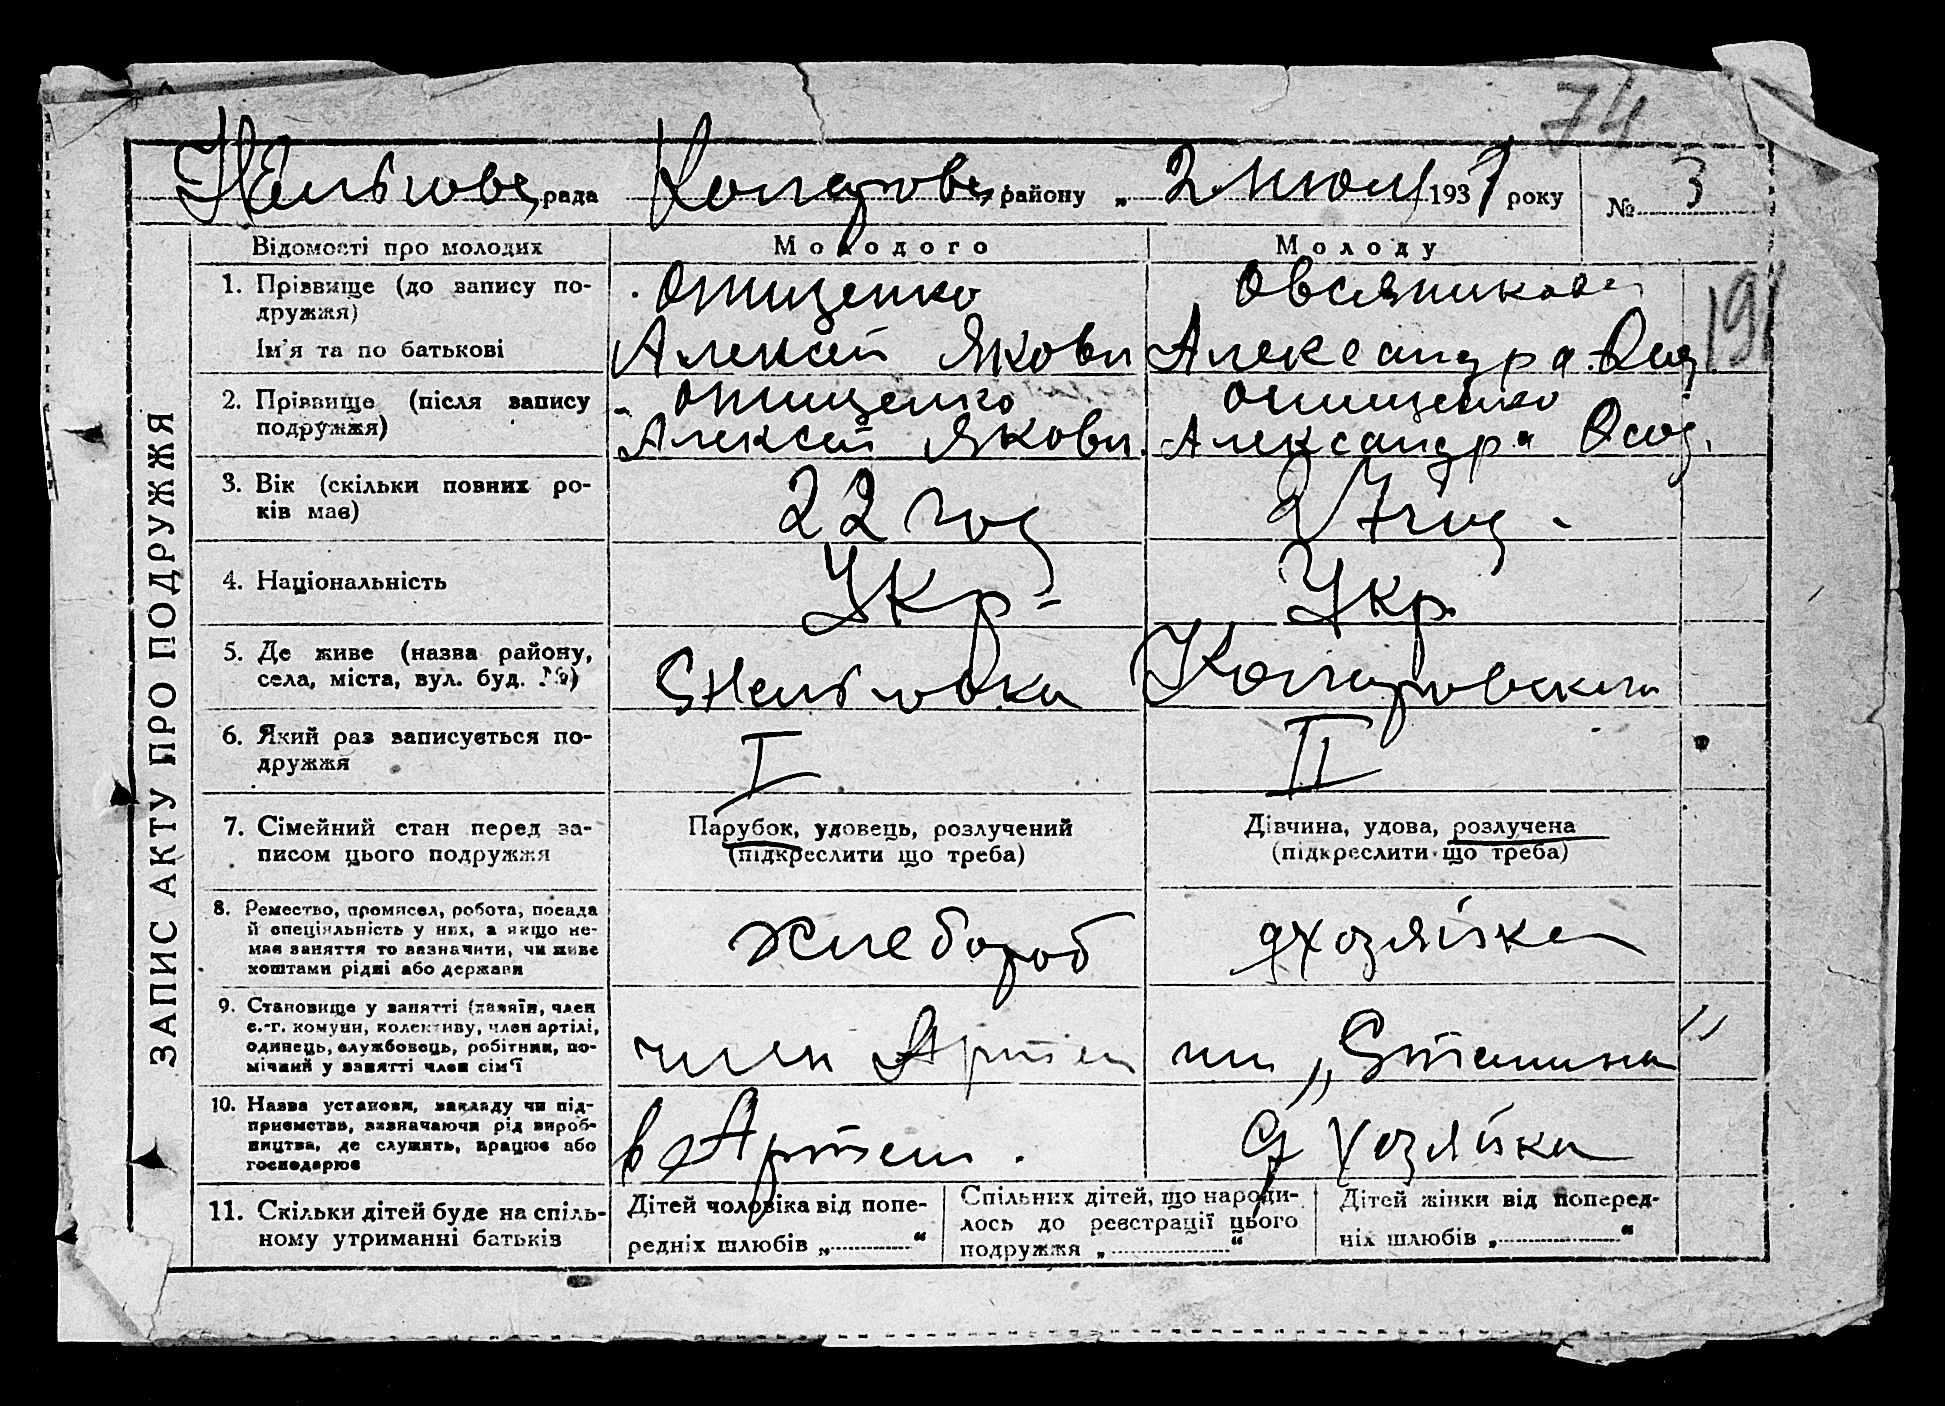 74
рада району „ 2 июля 1937 року № 3
ЗАПИС АКТУ ПРО ПОДРУЖЖЯ
Відомості про молодих Молодого Молоду
1. Прізвище (до запису по-
дружжя)
Онищенко Овсяникова
Ім'я та по батькові Алексей Якови Александра
191
2. Прізвище (після запису
подружжя)
Онищенко Онищенко
Алексей Якови. Александра
3. Вік (скільки повних ро-
ків має)
22 год 27 год
4. Національність Укр- Укр.
5. Де живе (назва району,
села, міста, вул. буд. №)
6. Який раз записується по-
дружжя
I II
7. Сімейний стан перед за-
писом цього подружжя
Парубок, удовець, розлучений
(підкреслити що треба)
Дівчина, удова, розлучена
(підкреслити що треба)
8. Ремество, промисел, робота, посада
й спеціяльність у них, а якщо не-
має заняття то зазначити, чи живе
коштами рідні або держави
хлебороб дхозяйка
9. Становище у занятті (хазяїн, член
с.-г. комуни, колективу, член артілі,
одинець, службовець, робітник, по-
мічний у занятті член сім'ї
член Артели им „Сталина"
10. Назва установи, закладу чи під-
приємства, зазначаючи рід вироб-
ництва, де служить, працює або
господарює
в Артели. д хозяйка
11. Скільки дітей буде на спіль-
ному утриманні батьків
Дітей чоловіка від попе-
редніх шлюбів „ “
Спільних дітей, що народи-
лось до реєстрації цього
подружжя „ “
Дітей жінки від поперед-
ніх шлюбів „ “